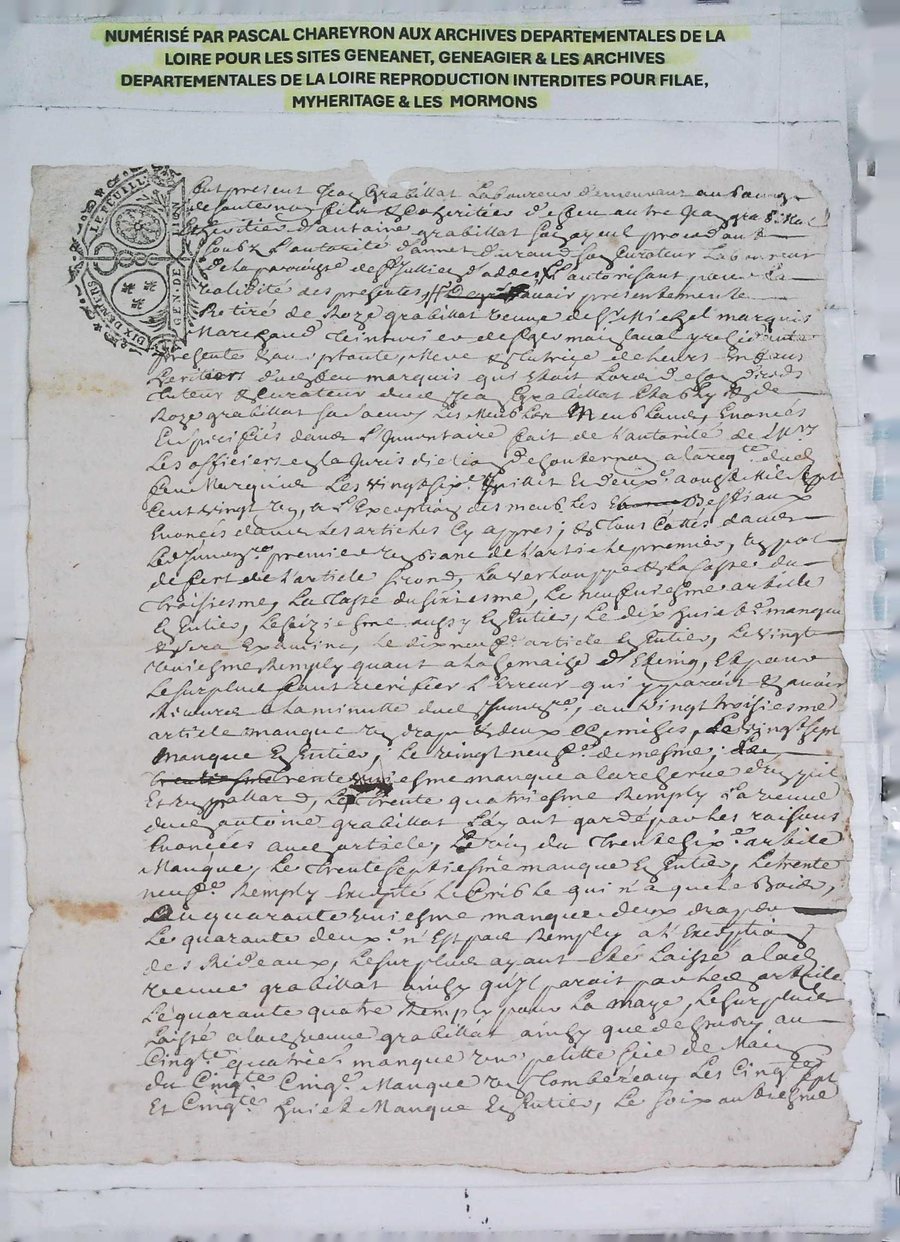 NUMÉRISÉ PAR PASCAL CHAREYRON AUX ARCHIVES DEPARTEMENTALES DE LA
LOIRE POUR LES SITES GENEANET, GENEAGIER & LES ARCHIVES
DEPARTEMENTALES DE LA LOIRE REPRODUCTION INTERDITES POUR FILAE,
MYHERITAGE & LES MORMONS
LE FEUILL
DIX DENIERS
GEN. DE LION
fut présent Jean Grabillat Laboureur demeurant au bourg
de Souternon fils & coheritier de feu autre Jean grabillat
heritier d'antoine grabillat son ayeul procedant
soubz L'autorité d'annet durand son Curateur Laboureur
de la paroisse de St Jullien d'oddes L'autorisant pour la
validité des presentes avoir presentement
Retiré de Roze grabillat veuve de Sr Michel marquis
Marchand Teinturier de
presente & acceptante, Mere & tutrice de leurs Enfans
heritiers dud feu marquis qui étoit Lors
tuteur & curateur dud Jean Grabillat & de
Roze grabillat sa soeur, Les Meubles Meublans, Enoncés
Et spécifiés dans L'Inventaire fait de L'autorité de
Les officiers en la Jurisdiction de Souternon a la reqte dud
feu Marquis Les vingt six Juillet Et deux aoust Mil sept
Cent vingt un, a L'Exception des meubles Bestiaux
Enoncés dans Les articles Cy appres; & tous Cottés dans
Led Inventre premier un banc de L'article premier, un pot
de fert de L'article second, La & La casse du
Troisiesme, La Tasse du sixiesme, Le neufviesme article
En Entier, Le seiziesme aussy En Entier, Le dix huict manque
& sera Examiné, Le dix neuf article En Entier, Le vingt
uniesme Remply quant a la, Et pour
Le surplus faut verifier L'Erreur qui y paroit & avoir
Recours a La minutte dud Inventre, au vingt troisiesme
article manque un drap & deux chemises, Le vingt sept
manque En Entier, Le vingt neuf de mesme,
trente manque a la reserve d'un
Et, Le Trente quatriesme Remply La veuve
dud antoine grabillat L'ay ant gardé par Les raisons
Enoncées aud article, Le du Trente six article
Manque, Le Trente septiesme manque En Entier, Le trente
neuf Remply Excepté Le Crible qui n'a que Le Bois,
au quarante uniesme manque deux draps
Le quarante deux n'Est pas Remply a L'Exception
des Rideaux, Le surplus ayant Etés Laissé a lad
veuve grabillat ainsy qu'Il paroit par led article
Le quarante quatre Remply pour La maye, Le surplus
Laissé a lad veuve grabillat ainsy que dessus, au
Cinqte quatre manque une petitte scie de Main
du Cinqte Cinq Manque un Tombereau, Les Cinqte sept
Et Cinqte huict Manque En Entier, Le soixantiesme